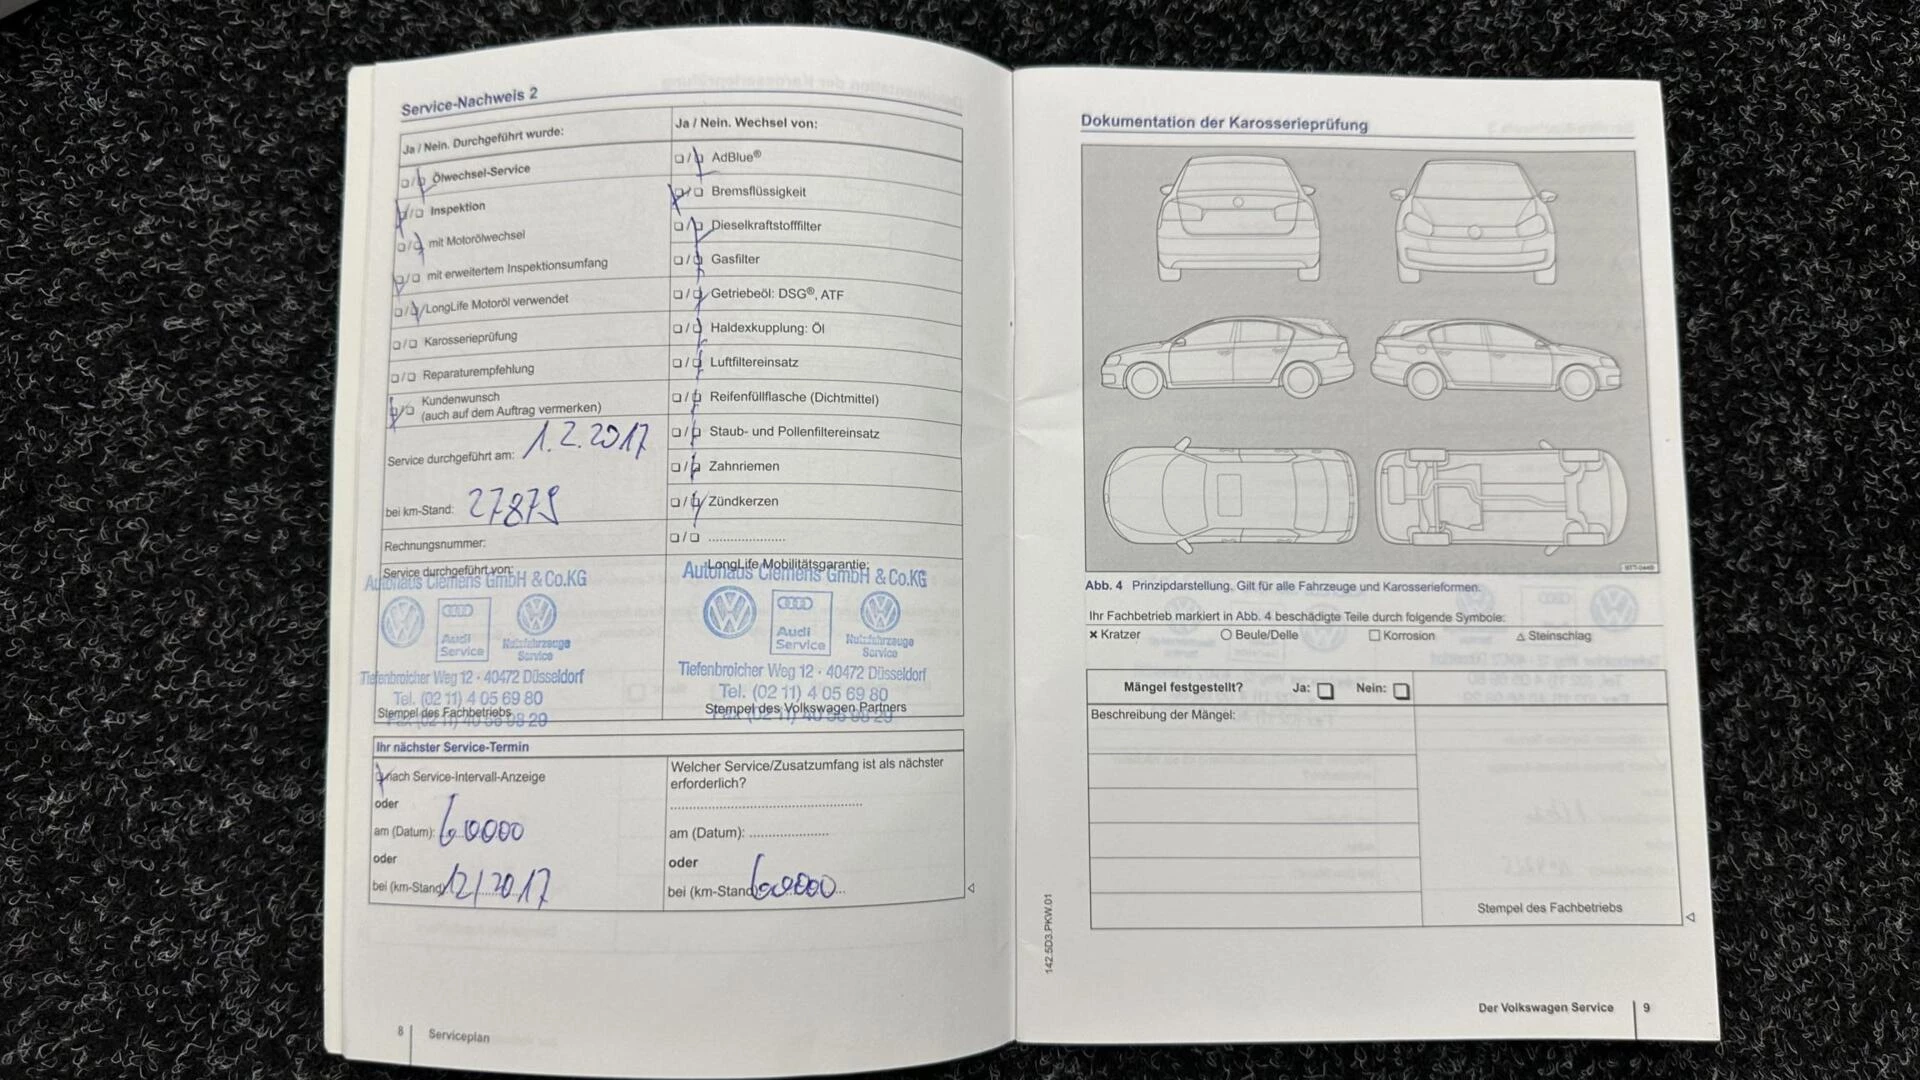 Service-Nachweis 2
Ja / Nein. Durchgeführt wurde:
Ölwechsel-Service
Inspektion
mit Motorölwechsel
mit erweitertem Inspektionsumfang
LongLife Motoröl verwendet
Karosserieprüfung
Reparaturempfehlung
Kundenwunsch
(auch auf dem Auftrag vermerken)
Service durchgeführt am: 1.2.2017
bei km-Stand: 27879
Rechnungsnummer:
Service durchgeführt von:
Autohaus Clemens GmbH & Co.KG
Audi
Service
Nutzfahrzeuge
Service
Tiefenbroicher Weg 12 · 40472 Düsseldorf
Tel. (02 11) 4 05 69 80
Stempel des Fachbetriebs
Ja / Nein. Wechsel von:
AdBlue®
Bremsflüssigkeit
Dieselkraftstofffilter
Gasfilter
Getriebeöl: DSG®, ATF
Haldexkupplung: Öl
Luftfiltereinsatz
Reifenfüllflasche (Dichtmittel)
Staub- und Pollenfiltereinsatz
Zahnriemen
Zündkerzen
LongLife Mobilitätsgarantie:
Autohaus Clemens GmbH & Co.KG
Audi
Service
Nutzfahrzeuge
Service
Tiefenbroicher Weg 12 · 40472 Düsseldorf
Tel. (02 11) 4 05 69 80
Stempel des Volkswagen Partners
Ihr nächster Service-Termin
nach Service-Intervall-Anzeige
oder
am (Datum): 60000
oder
bei (km-Stand) 12/2017
Welcher Service/Zusatzumfang ist als nächster
erforderlich?
am (Datum):
oder
bei (km-Stand) 60000
8 Serviceplan
Dokumentation der Karosserieprüfung
Abb. 4 Prinzipdarstellung. Gilt für alle Fahrzeuge und Karosserieformen.
Ihr Fachbetrieb markiert in Abb. 4 beschädigte Teile durch folgende Symbole:
Kratzer Beule/Delle Korrosion Steinschlag
Mängel festgestellt? Ja: Nein:
Beschreibung der Mängel:
Stempel des Fachbetriebs
142.5D3.PKW.01
Der Volkswagen Service 9